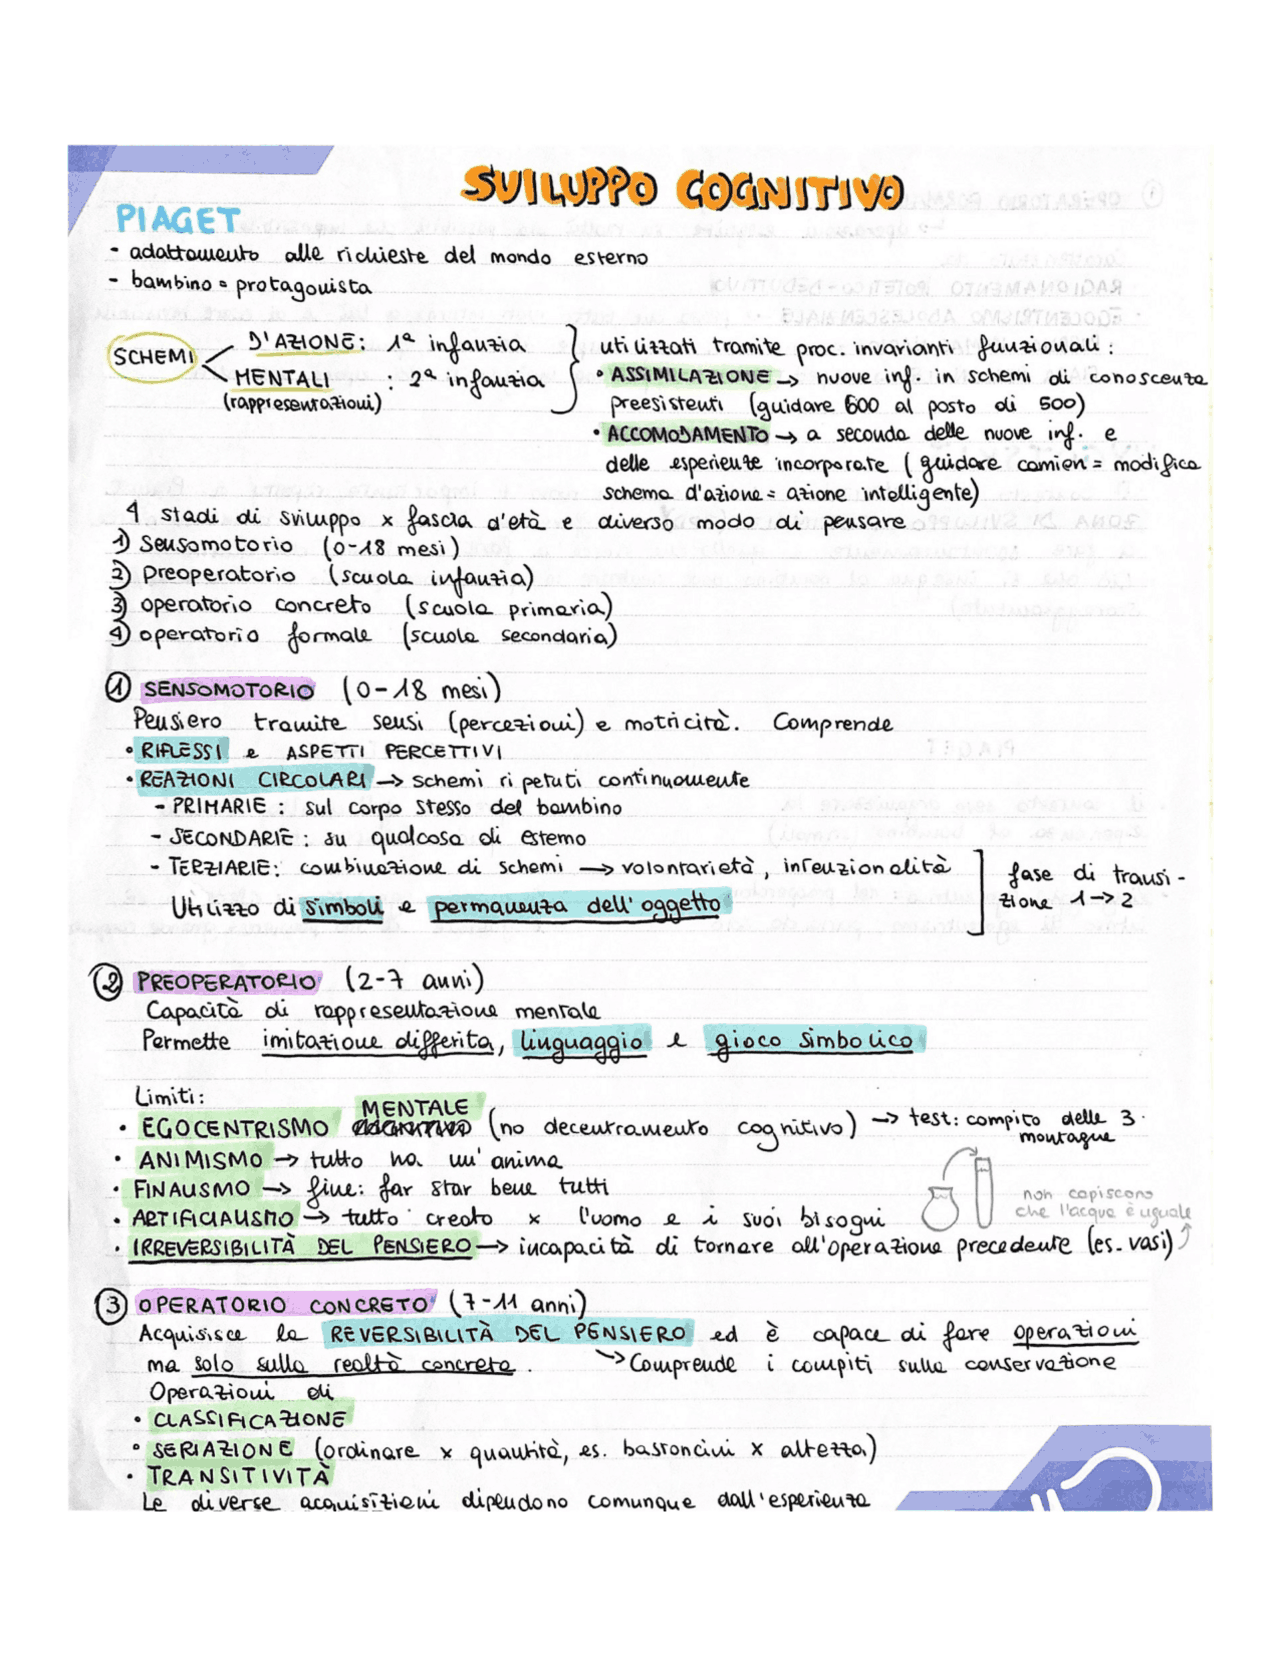 SVILUPPO COGNITIVO
PIAGET
- adattamento alle richieste del mondo esterno
- bambino = protagonista
SCHEMI
D'AZIONE: 1ª infanzia
MENTALI : 2ª infanzia
(rappresentazioni)
utilizzati tramite proc. invarianti funzionali:
• ASSIMILAZIONE → nuove inf. in schemi di conoscenza
preesistenti (guidare 600 al posto di 500)
• ACCOMODAMENTO → a seconda delle nuove inf. e
delle esperienze incorporate (guidare camion = modifica
schema d'azione = azione intelligente)
4 stadi di sviluppo x fascia d'età e diverso modo di pensare
1) Sensomotorio (0-18 mesi)
2) Preoperatorio (scuola infanzia)
3) operatorio concreto (scuola primaria)
4) operatorio formale (scuola secondaria)
① SENSOMOTORIO (0-18 mesi)
Pensiero tramite sensi (percezioni) e motricità. Comprende
• RIFLESSI e ASPETTI PERCETTIVI
• REAZIONI CIRCOLARI → schemi ripetuti continuamente
- PRIMARIE: sul corpo stesso del bambino
- SECONDARIE: su qualcosa di esterno
- TERZIARIE: combinazione di schemi → volontarietà, intenzionalità
Utilizzo di simboli e permanenza dell'oggetto
fase di transi-
zione 1→2
② PREOPERATORIO (2-7 anni)
Capacità di rappresentazione mentale
Permette imitazione differita, linguaggio e gioco simbolico
Limiti:
• EGOCENTRISMO MENTALE (no decentramento cognitivo) → test: compito delle 3
montagne
• ANIMISMO → tutto ha un'anima
• FINALISMO → fine: far star bene tutti
• ARTIFICIALISMO → tutto creato x l'uomo e i suoi bisogni
non capiscono
che l'acqua è uguale
• IRREVERSIBILITÀ DEL PENSIERO → incapacità di tornare all'operazione precedente (es. vasi)
③ OPERATORIO CONCRETO (7-11 anni)
Acquisisce la REVERSIBILITÀ DEL PENSIERO ed è capace di fare operazioni
ma solo sulla realtà concreta. → Comprende i compiti sulla conservazione
Operazioni di
• CLASSIFICAZIONE
• SERIAZIONE (ordinare x quantità, es. bastoncini x altezza)
• TRANSITIVITÀ
Le diverse acquisizioni dipendono comunque dall'esperienza